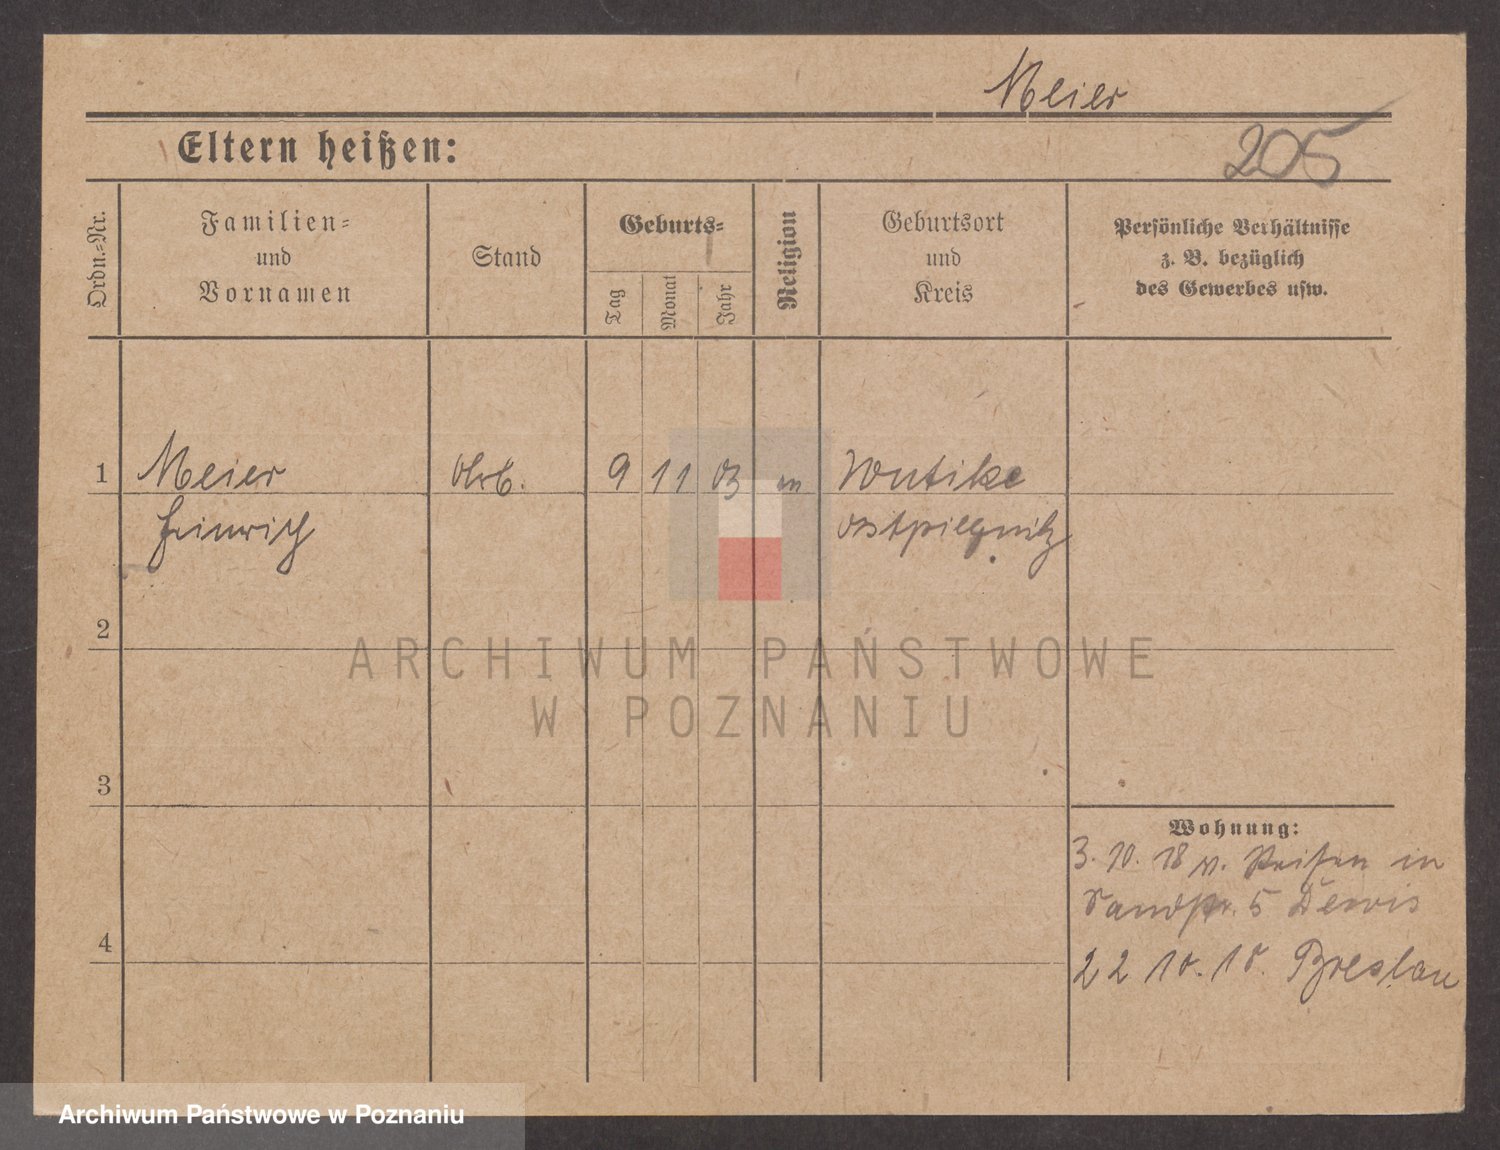 Meier
Eltern heißen:
205
Ordn.-Nr.
Familien-
und
Vornamen
Stand
Geburts-
Tag
Monat
Jahr
Religion
Geburtsort
und
Kreis
Persönliche Verhältnisse
z. B. bezüglich
des Gewerbes usw.
1 Meier Arb. 9 11 03 Wutike
Heinrich Ostpriegnitz
2
ARCHIWUM PAŃSTWOWE
W POZNANIU
3
Wohnung:
3. 10. 18 v. Reisen in
5
4
22 10. 18. Breslau
Archiwum Państwowe w Poznaniu